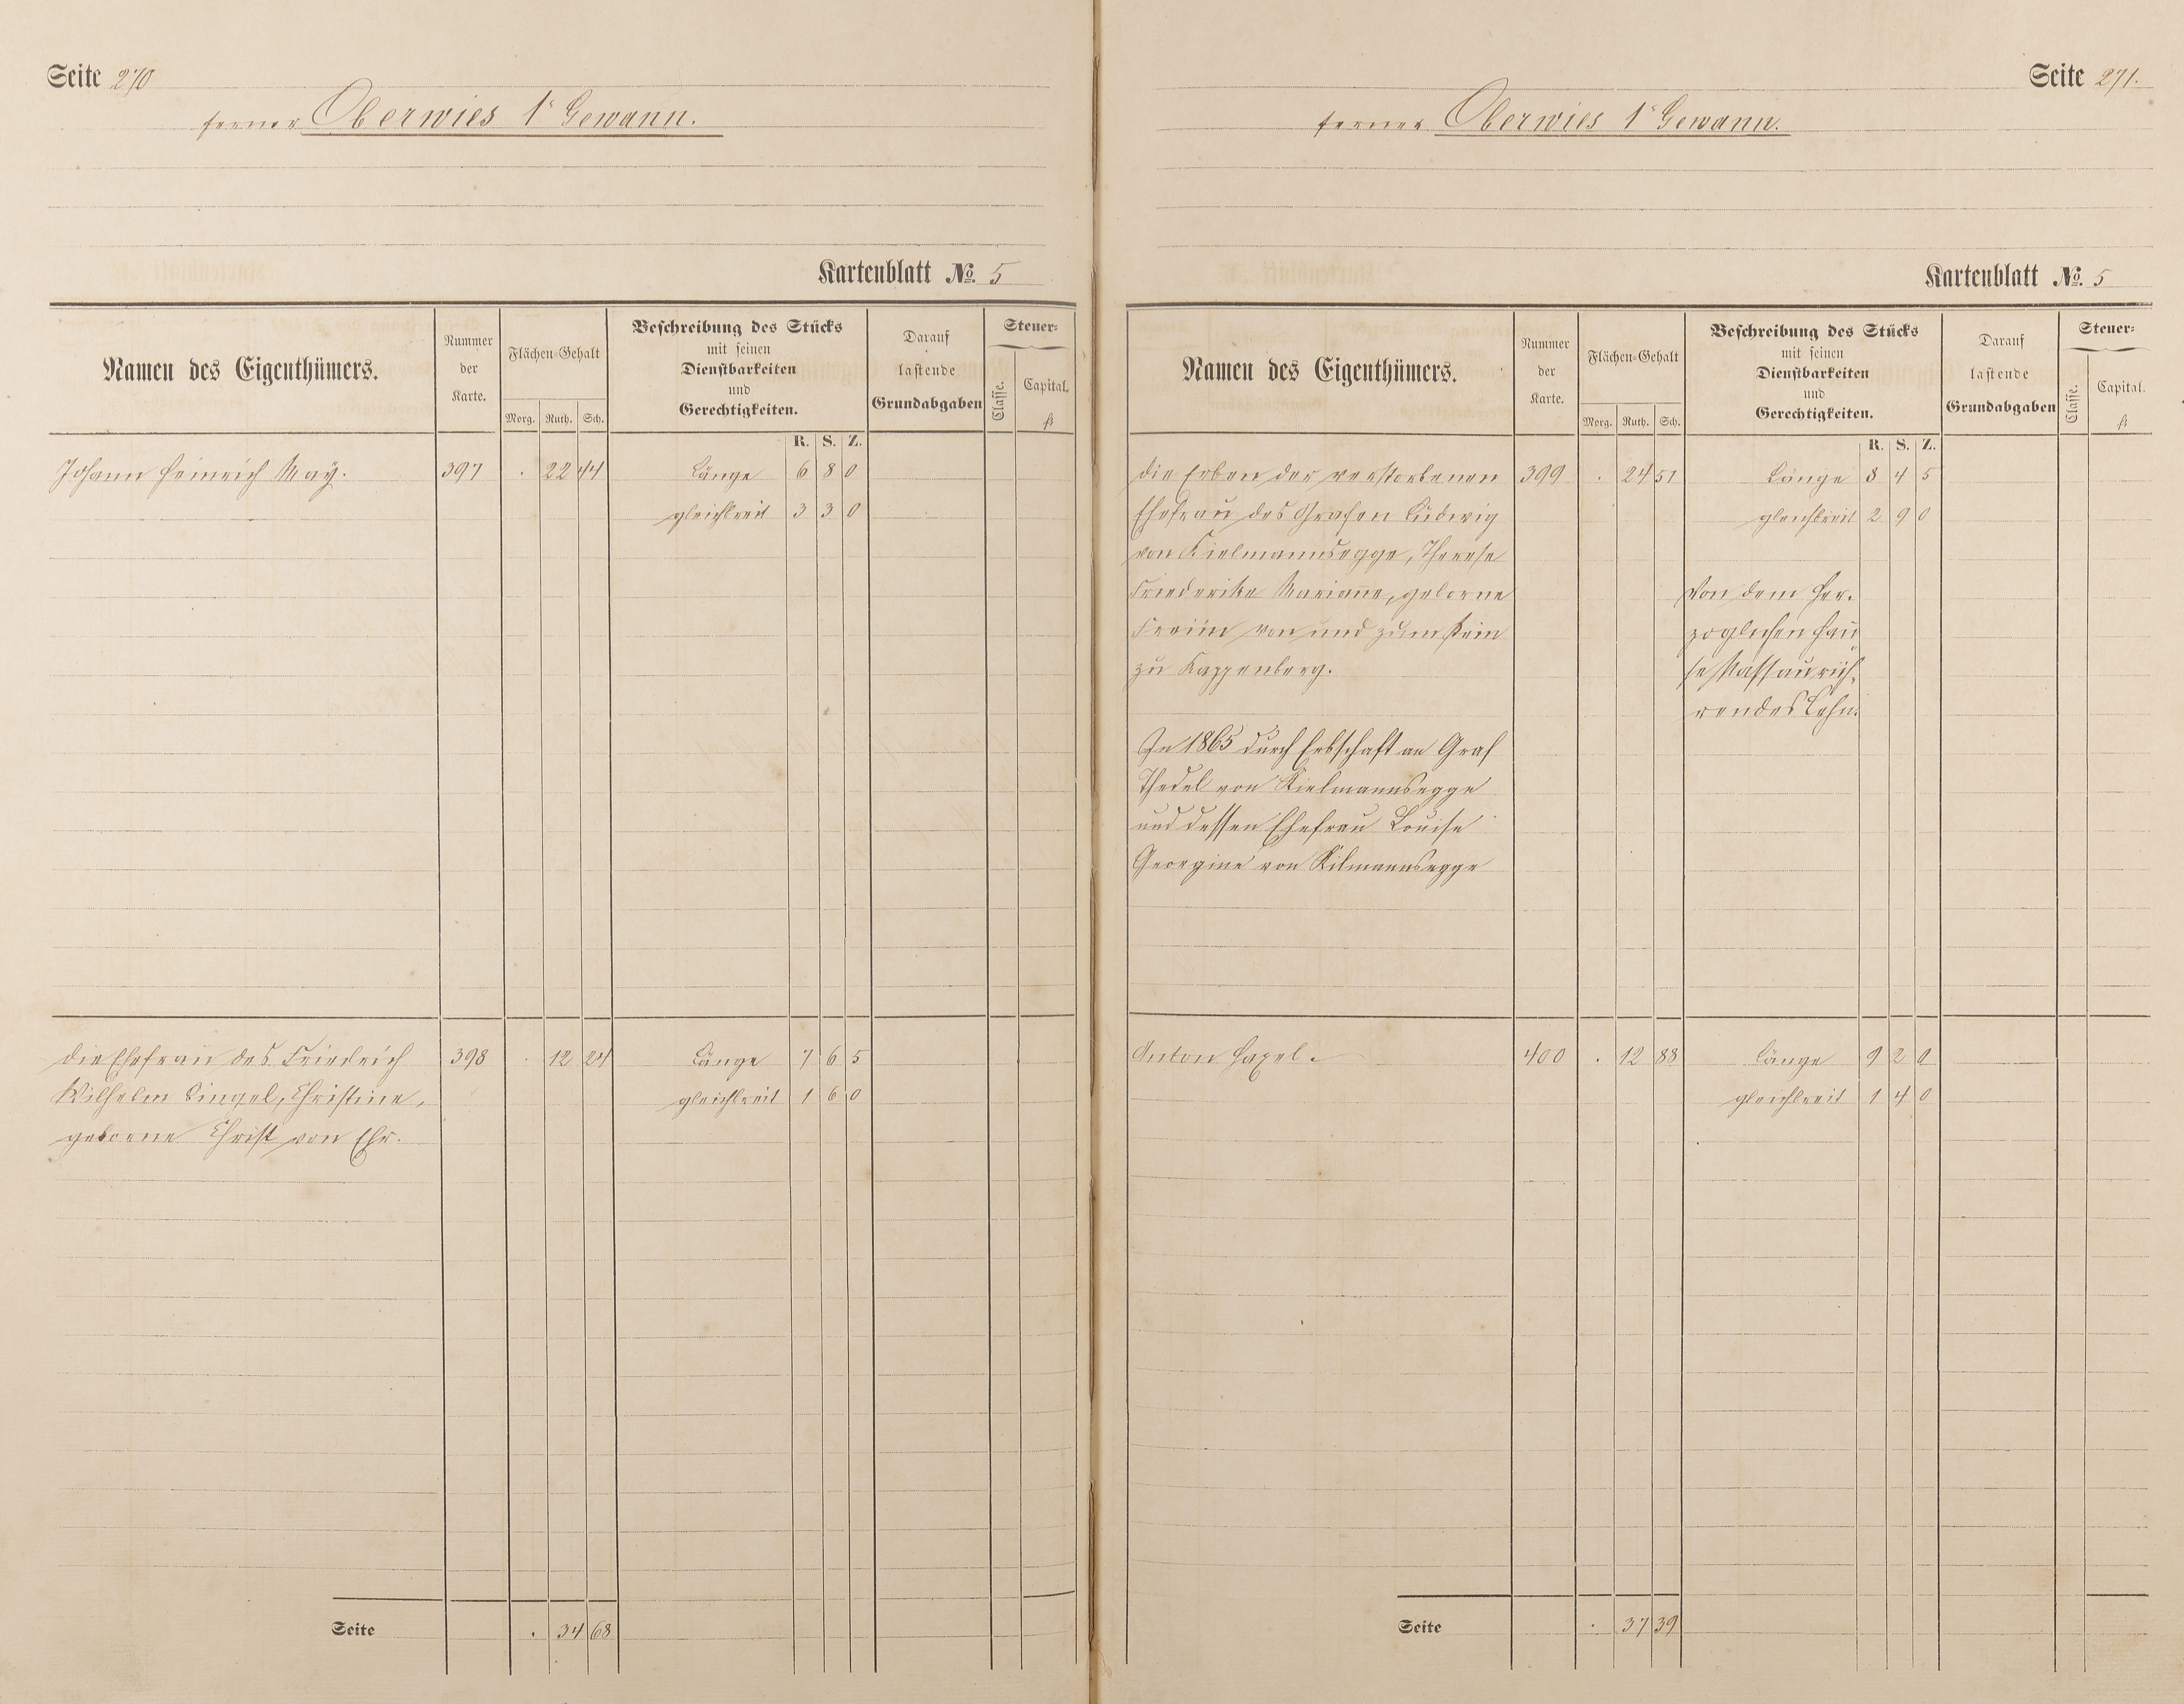 Seite 270
ferner Oberwies 1r Gewann.
Kartenblatt No. 5
Namen des Eigenthümers.
Nummer der Karte.
Flächen-Gehalt
Morg. Ruth. Sch.
Beschreibung des Stücks
mit seinen
Dienstbarkeiten
und
Gerechtigkeiten.
Darauf
lastende
Grundabgaben
Steuer-
Classe. Capital.
fl
R. S. Z.
Johann Heinrich Maÿ. 397 . 22 44 Länge 6 8 0
gleichbreit 3 3 0
die Ehefrau des Friedrich 398 . 12 24 Länge 7 6 5
Wilhelm Singel, Christine, gleichbreit 1 6 0
geborne Christ von Ehr.
Seite . 34 68
Seite 271.
ferner Oberwies 1r Gewann.
Kartenblatt No. 5
Namen des Eigenthümers.
Nummer der Karte.
Flächen-Gehalt
Morg. Ruth. Sch.
Beschreibung des Stücks
mit seinen
Dienstbarkeiten
und
Gerechtigkeiten.
Darauf
lastende
Grundabgaben
Steuer-
Classe. Capital.
fl
R. S. Z.
die Erben der verstorbenen 399 . 24 51 Länge 8 4 5
Ehefrau des Grafen Ludwig gleichbreit 2 9 0
von Kielmannsegge, Therese
Friederike Marianne, geborne Von dem Her-
Freiin von und zum Stein zoglichen Hau
zu Kappenberg. se Nassau rüh-
rendes Lehn.
In 1865 durch Erbschaft an Graf
Thedel von Kielmannsegge
und dessen Ehefrau Louise
Georgine von Kilmannsegge
Anton Hagel. 400 . 12 88 Länge 9 2 0
gleichbreit 1 4 0
Seite . 37 39